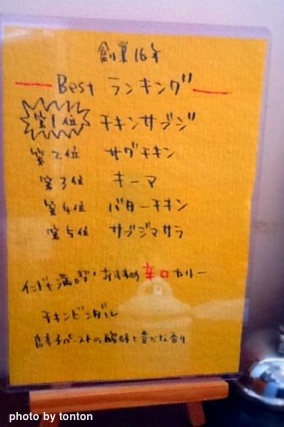 創業16年
Best ランキング
第1位 チキンサブジ
第2位 サグチキン
第3位 キーマ
第4位 バターチキン
第5位 サブジマサラ
インドを満喫!おすすめ辛口カリー
チキンビンダルー
の酸味と豊かな香り
photo by tonton